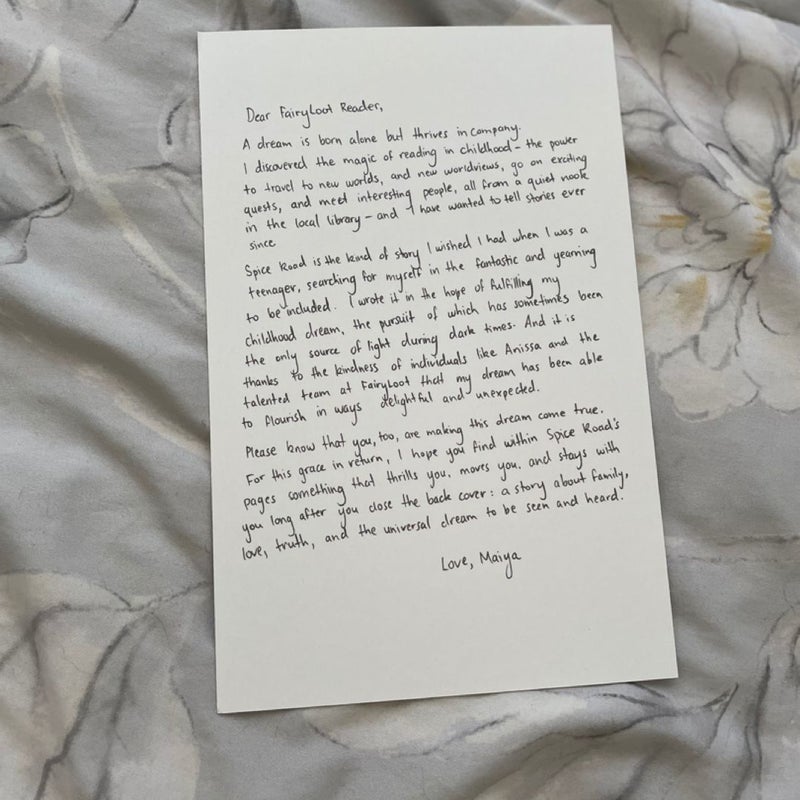 Dear FairyLoot Reader,
A dream is born alone but thrives in company.
I discovered the magic of reading in childhood – the power
to travel to new worlds, and new worldviews, go on exciting
quests, and meet interesting people, all from a quiet nook
in the local library – and I have wanted to tell stories ever
since.
Spice Road is the kind of story I wished I had when I was a
teenager, searching for myself in the fantastic and yearning
to be included. I wrote it in the hope of fulfilling my
childhood dream, the pursuit of which has sometimes been
the only source of light during dark times. And it is
thanks to the kindness of individuals like Anissa and the
talented team at FairyLoot that my dream has been able
to flourish in ways delightful and unexpected.
Please know that you, too, are making this dream come true.
For this grace in return, I hope you find within Spice Road's
pages something that thrills you, moves you, and stays with
you long after you close the back cover: a story about family,
love, truth, and the universal dream to be seen and heard.
Love, Maiya